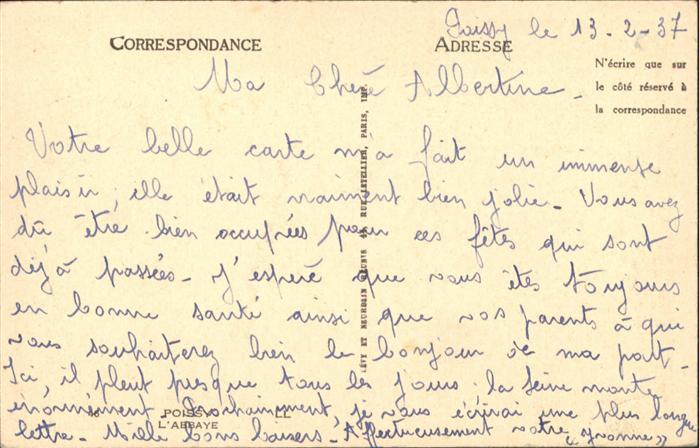 Poissy le 13-2-37
CORRESPONDANCE
ADRESSE
N'écrire que sur
le côté réservé à
la correspondance
Ma Chère Albertine -
Votre belle carte m'a fait un immense
plaisir, elle était vraiment bien jolie - Vous avez
dû être bien occupées pour ces fêtes qui sont
déjà passées - J'espère que vous êtes toujours
en bonne santé ainsi que vos parents à qui
vous souhaiterez bien le bonjour de ma part -
Ici, il pleut presque tous les jours : la Seine monte
énormément. Prochainement, je vous écrirai une plus longue
lettre - Mille bons baisers - Affectueusement votre
POISSY
L'ABBAYE
LÉVY ET NEURDEIN RÉUNIS RUE LETELLIER, PARIS, IMP.